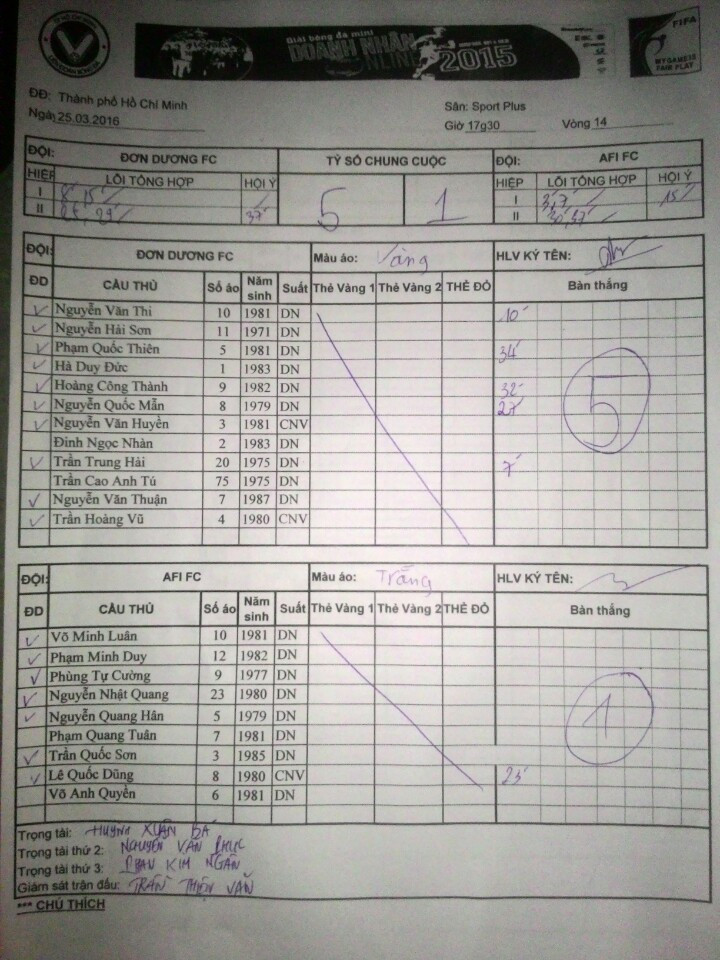 Giải bóng đá mini
DOANH NHÂN
ONLINE 2015
FIFA
MY GAME IS
FAIR PLAY
ĐĐ: Thành phố Hồ Chí Minh Sân: Sport Plus
Ngày 25.03.2016 Giờ 17g30 Vòng 14
ĐỘI: ĐƠN DƯƠNG FC TỶ SỐ CHUNG CUỘC ĐỘI: AFI FC
HIỆP LỖI TỔNG HỢP HỘI Ý 5 1 HIỆP LỖI TỔNG HỢP HỘI Ý
I 8' 15' I 3', 7' 15'
II 29' 37' II 37'
ĐỘI: ĐƠN DƯƠNG FC Màu áo: Vàng HLV KÝ TÊN:
ĐD CẦU THỦ Số áo Năm sinh Suất Thẻ Vàng 1 Thẻ Vàng 2 THẺ ĐỎ Bàn thắng
Nguyễn Văn Thi 10 1981 DN 10'
Nguyễn Hải Sơn 11 1971 DN
Phạm Quốc Thiên 5 1981 DN 34'
Hà Duy Đức 1 1983 DN
Hoàng Công Thành 9 1982 DN 32'
Nguyễn Quốc Mẫn 8 1979 DN 27' 5
Nguyễn Văn Huyền 3 1981 CNV
Đinh Ngọc Nhàn 2 1983 DN
Trần Trung Hải 20 1975 DN 7'
Trần Cao Anh Tú 75 1975 DN
Nguyễn Văn Thuận 7 1987 DN
Trần Hoàng Vũ 4 1980 CNV
ĐỘI: AFI FC Màu áo: Trắng HLV KÝ TÊN:
ĐD CẦU THỦ Số áo Năm sinh Suất Thẻ Vàng 1 Thẻ Vàng 2 THẺ ĐỎ Bàn thắng
Võ Minh Luân 10 1981 DN
Phạm Minh Duy 12 1982 DN
Phùng Tự Cường 9 1977 DN
Nguyễn Nhật Quang 23 1980 DN
Nguyễn Quang Hân 5 1979 DN 1
Phạm Quang Tuân 7 1981 DN
Trần Quốc Sơn 3 1985 DN
Lê Quốc Dũng 8 1980 CNV 23'
Võ Anh Quyền 6 1981 DN
Trọng tài: HUỲNH XUÂN BÁ
Trọng tài thứ 2: NGUYỄN VĂN PHÚC
Trọng tài thứ 3: PHAN KIM NGÂN
Giám sát trận đấu: TRẦN THIỆN VĂN
*** CHÚ THÍCH